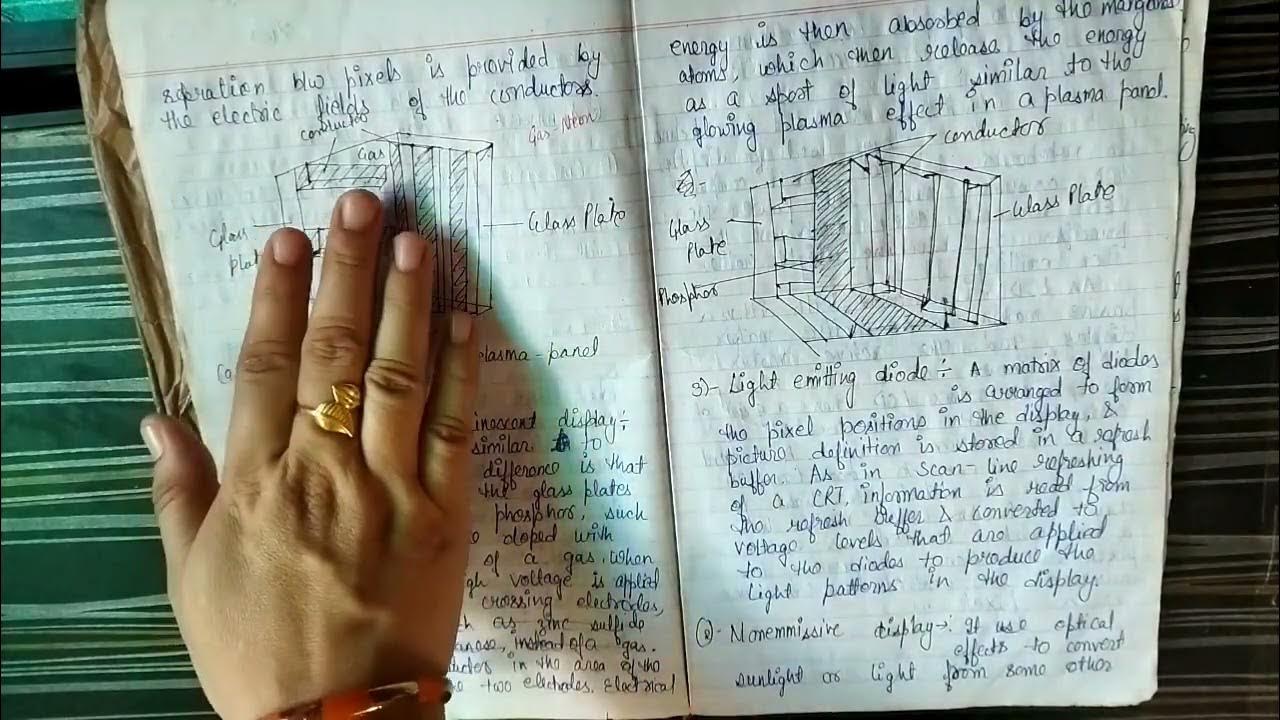 sepration b/w pixels is provided by
the electric fields of the conductors.
conductor
Gas
Gas-Neon
Glass
Plate
Glass Plate
(a
plasma-panel
inescent display÷
similar to
difference is that
the glass plates
phosphor, such
doped with
of a gas. when
gh voltage is applied
crossing electrodes,
as zinc sulfide
anese, instead of a gas.
in the area of the
two electrodes. Electrical
energy is then absorbed by the
atoms, which then release the energy
as a spost of light similar to the
glowing plasma effect in a plasma panel.
conductor
Glass
Plate
Glass Plate
Phosphor
3)- Light emitting diode ÷ A matrix of diodes
is arranged to form
the pixel positions in the display, &
picture definition is stored in a refresh
buffer. As in scan-line refreshing
of a CRT, information is read from
the refresh buffer & converted to
voltage levels that are applied
to the diodes to produce the
light patterns in the display.
Nonemmissive display→: It use optical
effects to convert
sunlight or light from some other